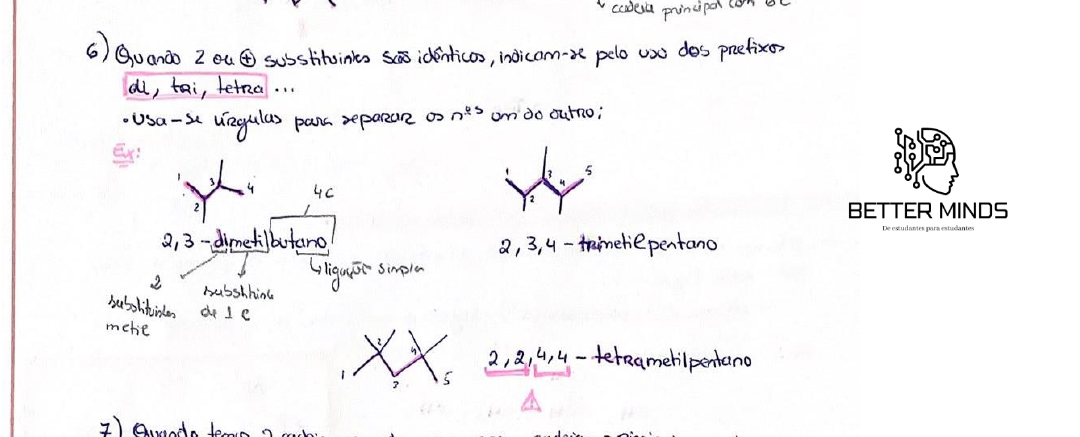 cadeia principal com 6C
6) Quando 2 ou ⊕ substituintes são idênticos, indicam-se pelo uso dos prefixos
di, tri, tetra ...
• Usa-se vírgulas para separar os nºs um do outro:
Ex:
1 2 3 4
4C
2,3-dimetilbutano
2 substituintes metil
substituinte de 1 C
↳ ligação simples
1 2 3 4 5
2,3,4-trimetilpentano
1 2 3 4 5
2,2,4,4-tetrametilpentano
BETTER MINDS
De estudantes para estudantes
7) Quando temos 2